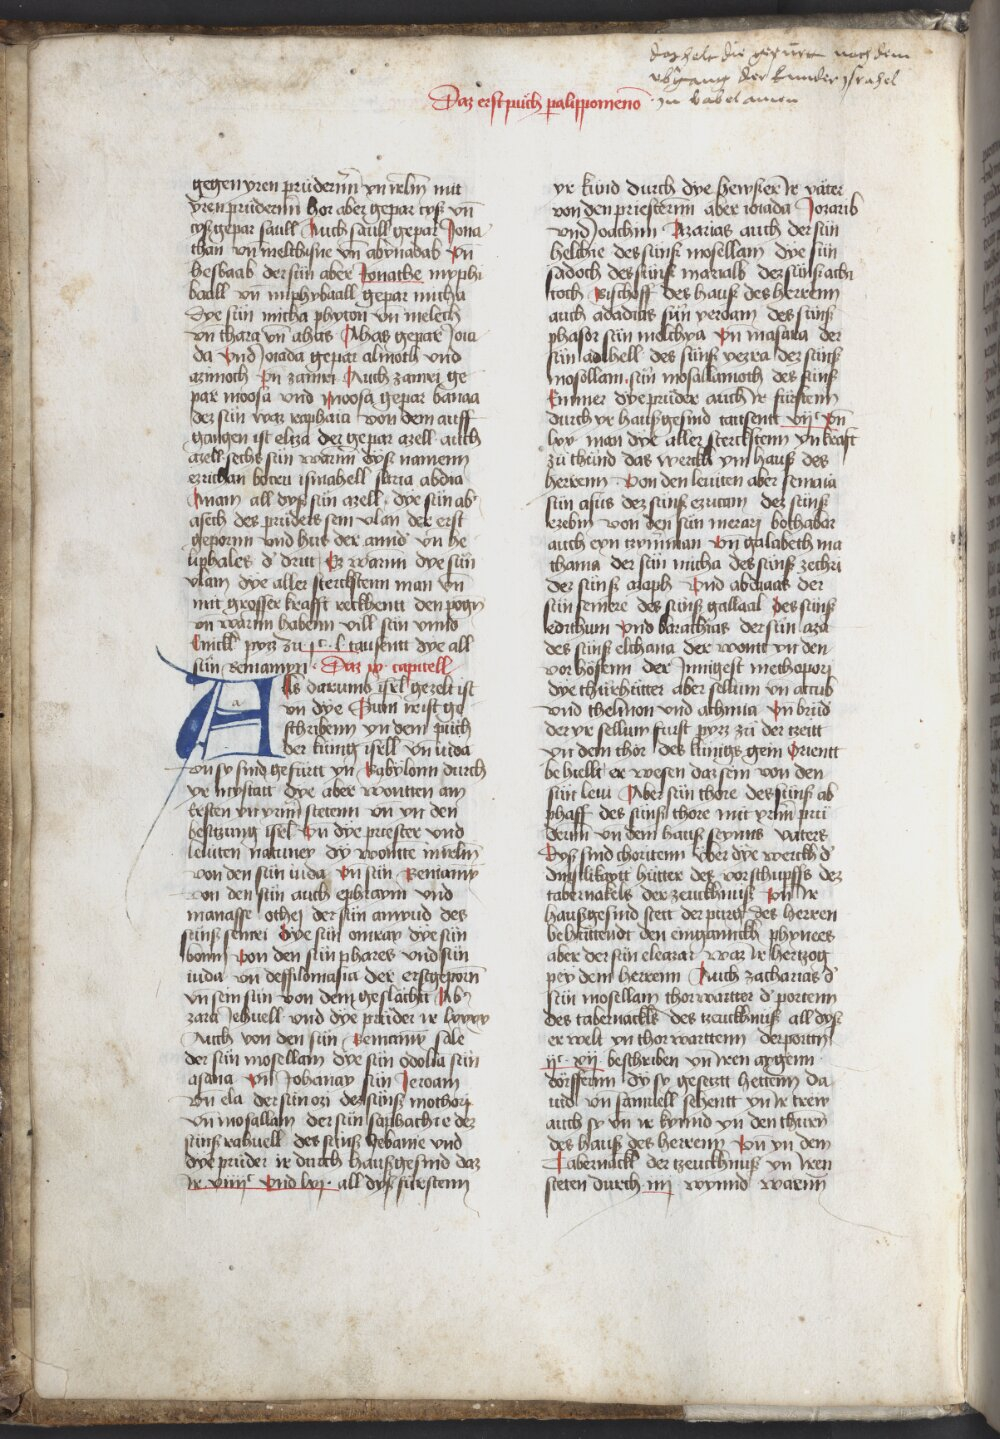 daz helt die gepurt nach dem
vbgang der kinder jsrahel
Jn babel annen
Daz erst půch palippomenō
gegen yren průdernn yn irlm̄ mit
yren průdernn Hor aber gepar cys vn̄
cys gepar saull Auch saull gepar Jona
than vn̄ melchisue vn̄ abynabab vn̄
hesbaab der sün aber Jonathe myphi
baall vn̄ miphybaall gepar micha
dye sün micha phyton vn̄ melech
vn̄ thara vn̄ ahas Ahas gepar Joia
da vnd Joiada gepar almoth vnd
azimoth vn̄ zamri Auch zamri ge
par moosa vnd moosa gepar banaa
des sün waz raphaia von dem auff
gangen ist eliza der gepar azell auch
azell sechs sün warnn dyß namenn
ezricham bocru ismahell saria abdia
Anam all dyß sün azell dye sün ab
asech des průders sein vlan der erst
gepornn vnd hus der annd' vn̄ he
liphales d' dritt Ez warnn dye sün
vlam dye aller sterckstenn man vn̄
mit grosser krafft reckhentt den pogn̄
vn̄ warnn habenn vill sün vnnd
Enickl pyzz zu j c. l tausentt dye all
sün Beniamyn . Daz ix capitell
Als darumb isrl gezelt ist
vn̄ dye Sum ir ist ge
schribenn yn dem půch
der künig isrll vn̄ iuda
vn̄ sy sind gefürtt yn Babylonn durch
yr mystatt dye aber wontten am
Ersten yn yrnn stetenn vn̄ yn den
besitzung isrl vn̄ dye priester vnd
leuiten natiney dy wontte in irlm̄
von den sün iuda vn̄ sün Beniamy
von den sün auch ephraym vnd
manasse othei der sün amyud des
sünß semri dye sün omray dye sün
bonni von den sün phares vnd sün
iuda vn̄ de silonia der erstgeporn̄
vn̄ sein sün von dem geslächtt Ab
zara Jehuell vnd dye průder ir lxxxx
Auch von den sün Beniamy sale
der sün mosellam dye sün odolia sün
asana vn̄ Jobanay sün Jeroam
vn̄ ela der sün ozi des sünß mothori
vn̄ mosallam der sün saphachie des
sünß rahuell des sünß Jebanie vnd
dye průder ir durch haußgesind daz
ir viiij c vnd lvj . all dyß fürstenn
yr künd durch dye hewser ir väter
von den priesternn aber ioiada Joiarib
vnd Joachim Azarias auch der sün
helchie des sünß mosellam dye sün
sadoch des sünß maraiob des sünß achi
toch Bischoff des hauß des herrenn
auch adaias sün yeroam des sünß
phasor sün melchya vn̄ masaia der
sün adihell des sünß yezra des sünß
mosollam sün mosallamoth des sünß
Emmer dye průder auch ir fürstenn
durch yr haußgesind tausentt vij c vn̄
lxx man dye aller sterckstenn yn kraft
zu thůnd das werckh ym hauß des
herrenn Von den leuiten aber semaia
sün asub des sünß ezricam des sünß
ezebin von den sün merari bothabar
auch eyn tzymman vn̄ galabeth ma
thania der sün micha des sünß zechri
des sünß azaph vnd abdias der
sün semere des sünß gallaal des sünß
edithum vnd barachias der sün aza
des sünß elchana der wontt yn den
vorhöfenn der Jnnigest methopori
dye thürhütter aber sellum vn̄ accub
vnd thelmon vnd achima vn̄ brůd
der yr sellum fürst pyzz zu der tzeitt
yn dem thor des künigs gein Orientt
behiellt er wesen darjnn von den
sün leui Aber sün thore des sünß ab
phass des sünß thore mit yrnn prü
dernn vn̄ dem hauß seynns vaters
dyß sind choritenn über dye werckh d'
dinstlikaytt hütter des vorschupffs dez
tabernakels der zeuckhnuß vn̄ ir
haußgesind stett der purg des herren
behüttendt den eingannckh phynees
aber der sün eleazar war ir hertzog
pey dem herrenn Auch zacharias d'
sün mosellam thorwartter d' portenn
des tabernackls des tzeuckhnuß all dyß
er welt yn thorwarttenn der portn̄
ij c xij beschriben yn iren aygenn
dörffernn dy sy gesetzt hettenn da
uid vn̄ samuell sehentt yn ir trew
auch sy vn̄ ir kynnd yn den thurn̄
des hauß des herrenn vn̄ yn dem
Tabernackl der tzeuckhnuß yn iren
steten durch iiij wynnd warnn